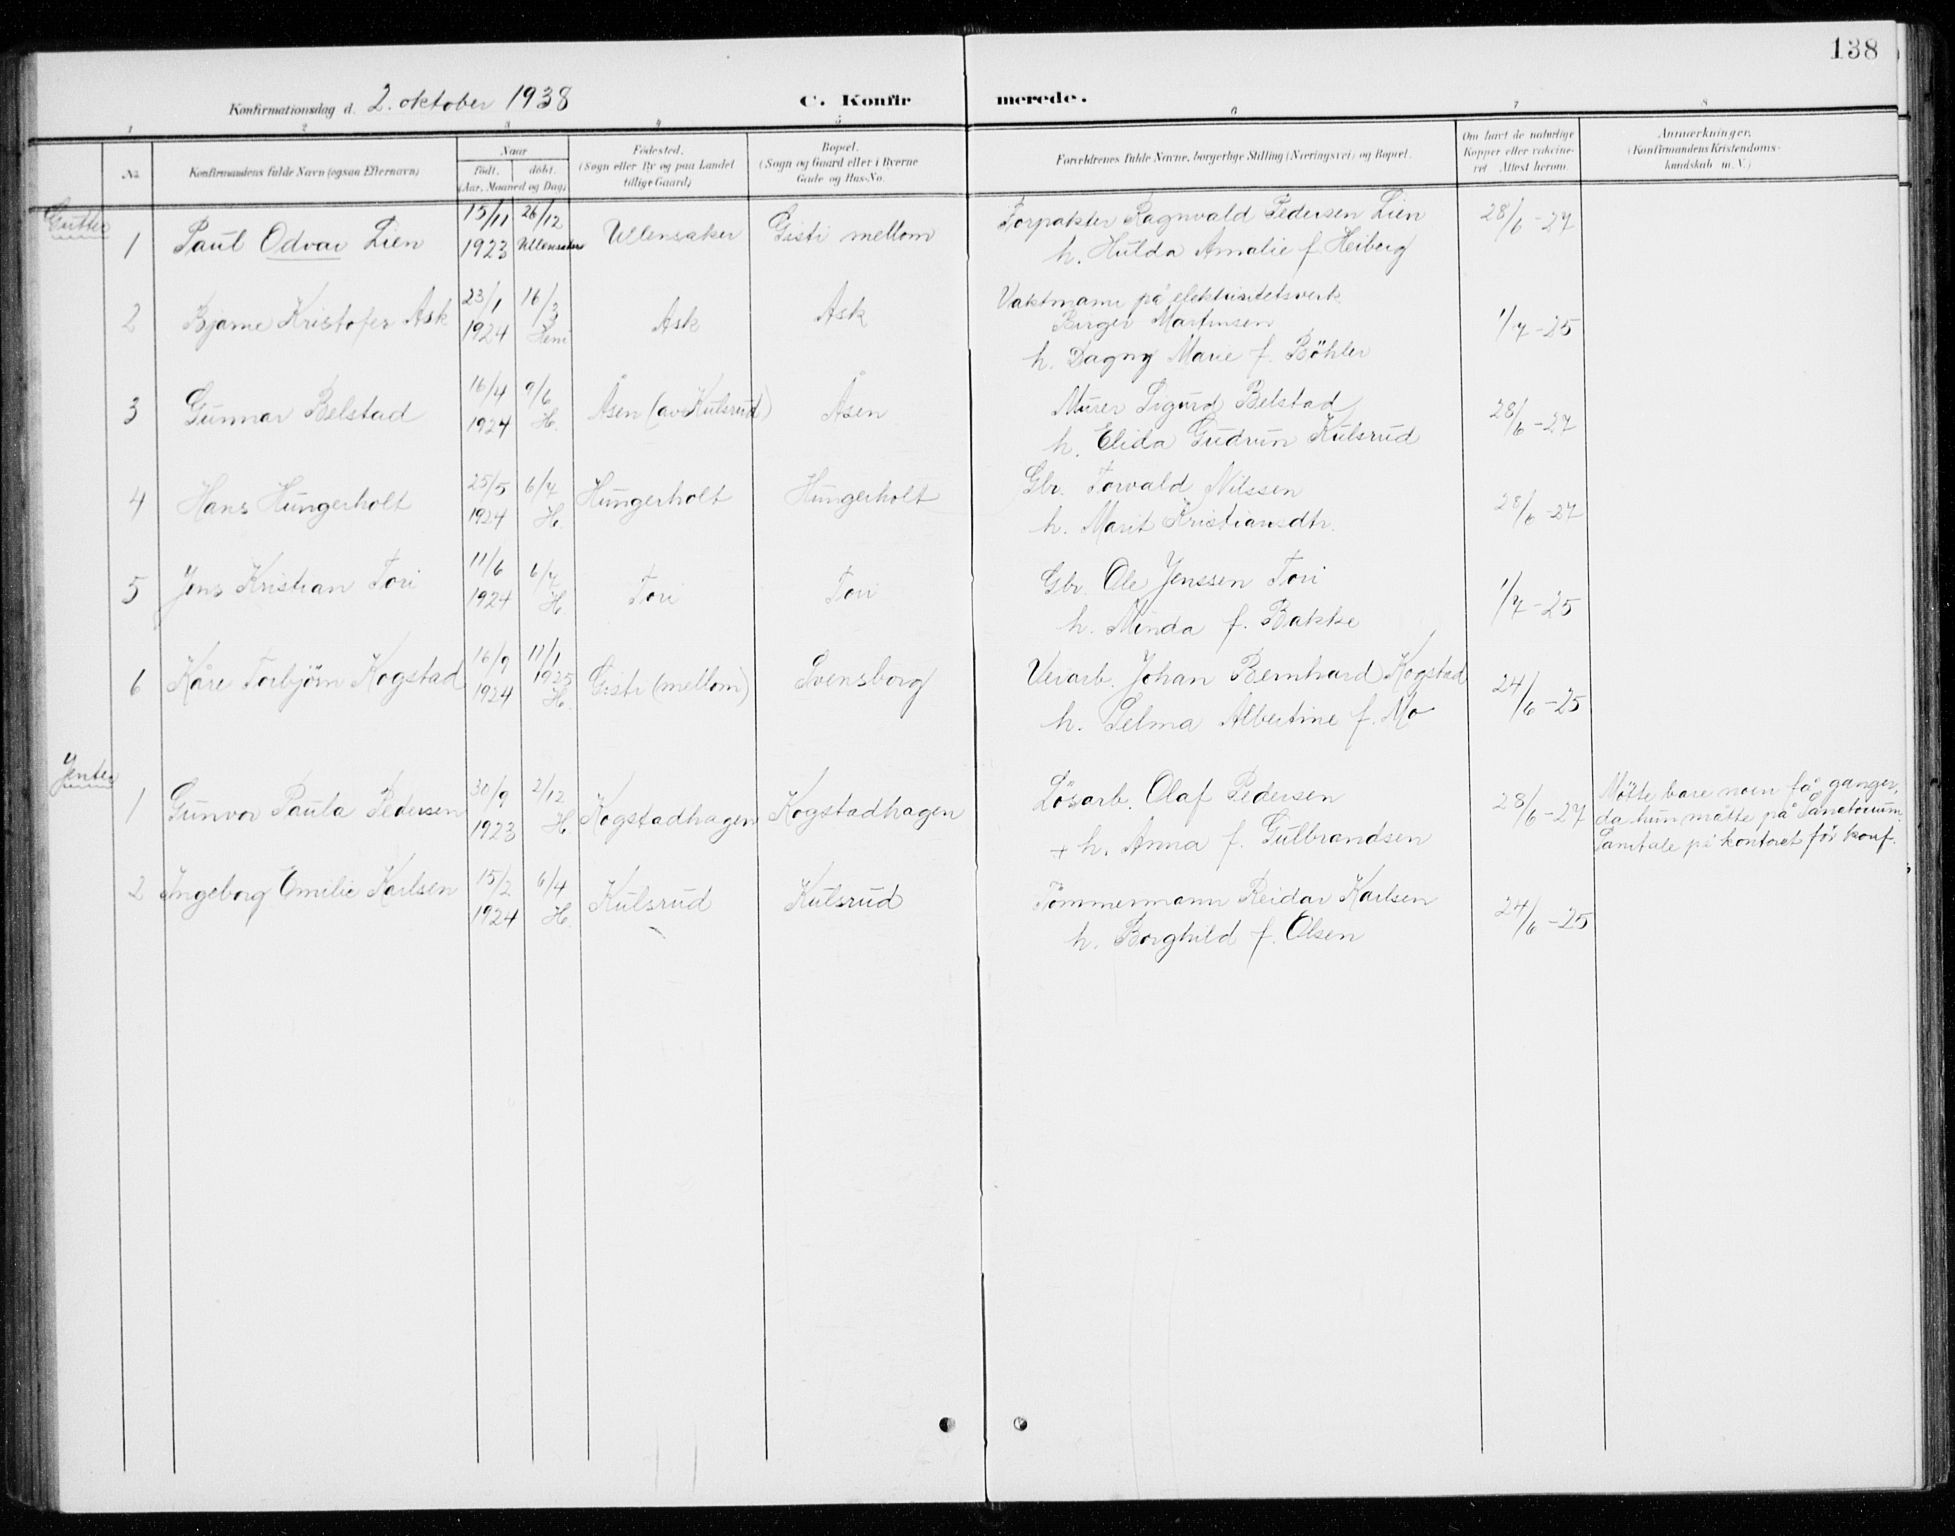 138
Konfirmationsdag d. 2. oktober 1938
C. Konfir merede.
1 2 3 4 5 6 7 8
No.
Konfirmandens fulde Navn (ogsaa Efternavn)
Naar
födt. döbt.
(Aar, Maaned og Dag)
Födested.
(Sogn eller By og paa Landet
tillige Gaard)
Bopæl.
(Sogn og Gaard eller i Byerne
Gade og Hus-No.
Forældrenes fulde Navne, borgerlige Stilling (Næringsvei) og Bopæl.
Om havt de naturlige
Kopper eller vakcine-
ret. Attest herom.
Anmærkninger.
(Konfirmandens Kristendoms-
kundskab m. V.)
Gutter
1 Paul Odvar Lien 15/11 1923 26/12 Ullensaker Ullensaker Gisti mellom
Forpakter Ragnvald Pedersen Lien 28/6-27
h. Hulda Amalie f. Heiberg
2 Bjarne Kristofer Ask 23/1 1924 16/3 Ask Ask
Vaktmann på elektrisitetsverk
Birger Martinsen 1/7-25
h. Dagny Marie f. Böhler
3 Gunnar Belstad 16/4 1924 9/6 H. Åsen (av Kulsrud) Åsen
Murer Sigurd Belstad 28/6-27
h. Elida Gudrun Kulsrud
4 Hans Hungerholt 25/5 1924 6/7 H. Hungerholt Hungerholt
Gbr. Torvald Nilssen 28/6-27
h. Marit Kristiansdtr.
5 Jens Kristian Tori 11/6 1924 6/7 H Tori Tori
Gbr. Ole Jenssen Tori 1/7-25
h. Minda f. Bakke
6 Kåre Torbjörn Kogstad 16/9 1924 11/1 1925 H. Gisti (mellom) Svensborg
Veiarb. Johan Bernhard Kogstad 24/6-25
h. Selma Albertine f. Mo
Jenter
1 Gunvor Paula Pedersen 30/9 1923 2/12 H Kogstadhagen Kogstadhagen
Lösarb. Olaf Pedersen 28/6-27
+ h. Anna f. Gulbrandsen
Mötte bare noen få ganger,
da hun måtte på Sanatorium.
Samtale på kontoret för konf.
2 Ingeborg Emilie Karlsen 15/2 1924 6/4 H. Kulsrud Kulsrud
Tömmermann Reidar Karlsen 24/6-25
h. Borghild f. Olsen